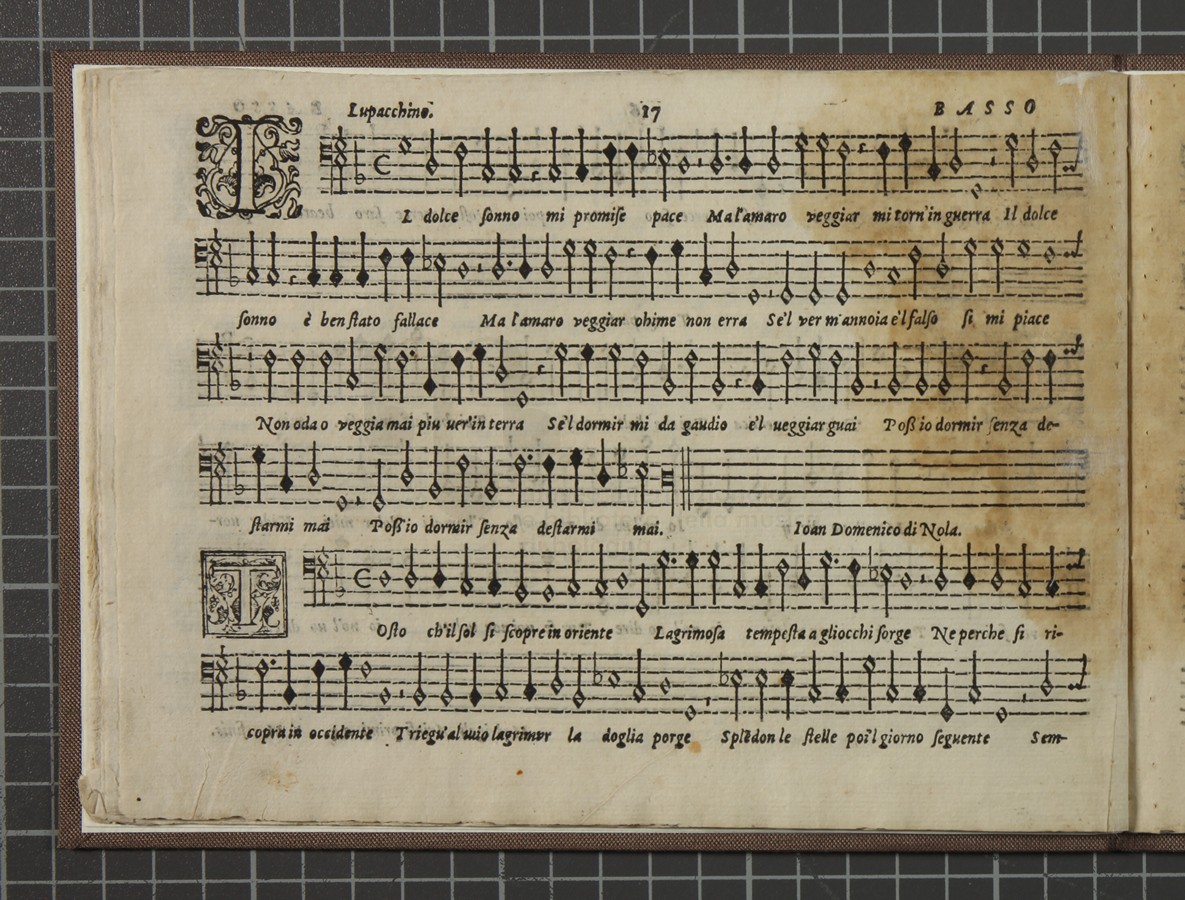 Lupacchino. 17 BASSO
IL dolce ſonno mi promiſe pace Ma l'amaro veggiar mi torn'in guerra Il dolce
ſonno è ben ſtato fallace Ma l'amaro veggiar ohime non erra Se'l ver m'annoia e'l falſo ſi mi piace
Non oda o veggia mai piu uer'in terra Se'l dormir mi da gaudio e'l ueggiar guai Poß'io dormir ſenza de-
ſtarmi mai Poß'io dormir ſenza deſtarmi mai. Ioan Domenico di Nola.
TOſto ch'il ſol ſi ſcopre in oriente Lagrimoſa tempeſta a gliocchi ſorge Ne perche ſi ri-
copra in occidente Triegu'al mio lagrimar la doglia porge Splēdon le ſtelle poi'l giorno ſeguente Sem-